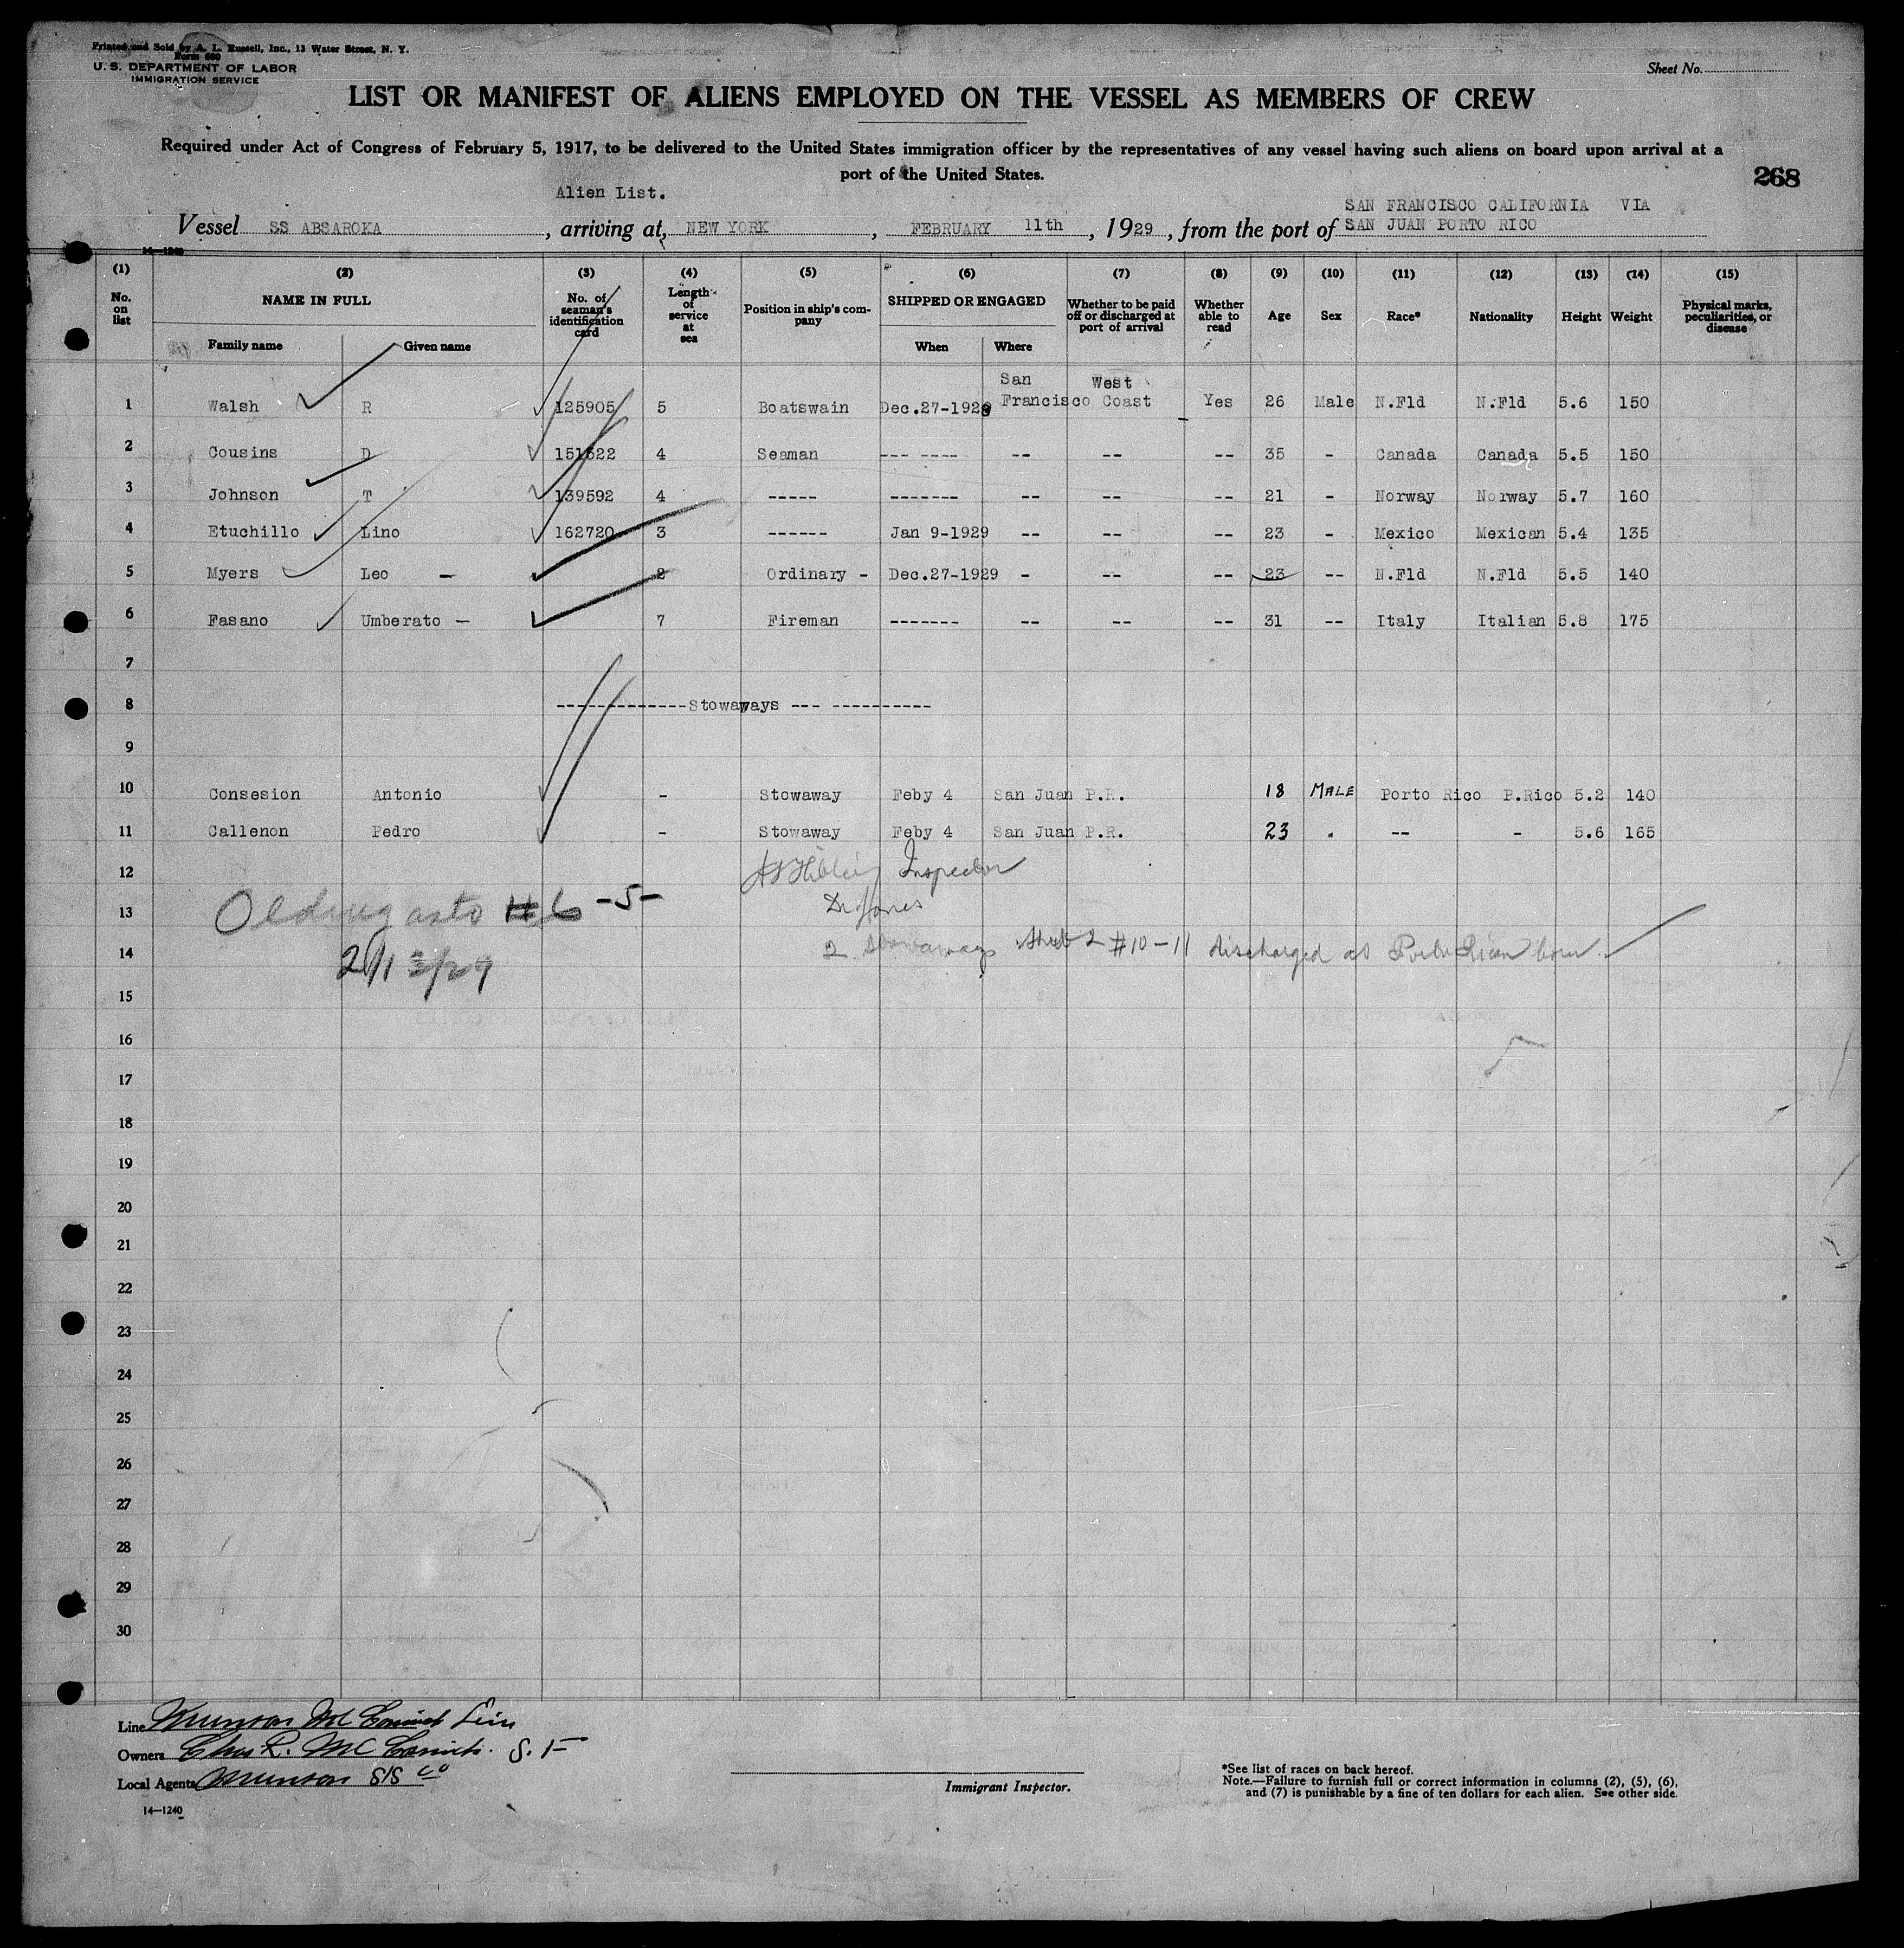 Printed and Sold by A. L. Russell, Inc., 13 Water Street, N. Y.
Form 680
U. S. DEPARTMENT OF LABOR
IMMIGRATION SERVICE
Sheet No.
LIST OR MANIFEST OF ALIENS EMPLOYED ON THE VESSEL AS MEMBERS OF CREW
Required under Act of Congress of February 5, 1917, to be delivered to the United States immigration officer by the representatives of any vessel having such aliens on board upon arrival at a
port of the United States.
268
Alien List.
SAN FRANCISCO CALIFORNIA VIA
Vessel SS ABSAROKA, arriving at, NEW YORK, FEBRUARY 11th, 1929, from the port of SAN JUAN PORTO RICO
14-1240
(1) (2) (3) (4) (5) (6) (7) (8) (9) (10) (11) (12) (13) (14) (15)
No. on list NAME IN FULL Family name Given name No. of seaman's identification card Length of service at sea Position in ship's company SHIPPED OR ENGAGED When Where Whether to be paid off or discharged at port of arrival Whether able to read Age Sex Race* Nationality Height Weight Physical marks, peculiarities, or disease
San West
1 Walsh R 125905 5 Boatswain Dec.27-1928 Francisco Coast Yes 26 Male N.Fld N.Fld 5.6 150
2 Cousins D 151522 4 Seaman --- ---- -- -- -- 35 - Canada Canada 5.5 150
3 Johnson T 139592 4 ----- ------- -- -- -- 21 - Norway Norway 5.7 160
4 Etuchillo Lino 162720 3 ------ Jan 9-1929 -- -- -- 23 - Mexico Mexican 5.4 135
5 Myers Leo - 2 Ordinary - Dec.27-1929 - -- -- 23 -- N.Fld N.Fld 5.5 140
6 Fasano Umberato - 7 Fireman ------- -- -- -- 31 -- Italy Italian 5.8 175
7
8 -------------Stowaways --- ----------
9
10 Consesion Antonio - Stowaway Feby 4 San Juan P.R. 18 MALE Porto Rico P.Rico 5.2 140
11 Callenon Pedro - Stowaway Feby 4 San Juan P.R. 23 . -- - 5.6 165
12 Inspector
13 -5-
14 2 Stowaways Sheet 2 #10-11 discharged as Porto Rican born
15
16
17
18
19
20
21
22
23
24
25
26
27
28
29
30
Line Munson McCormick Line
Owners Chas R. McCormick
Local Agents Munson S/S Co
14-1240
Immigrant Inspector.
*See list of races on back hereof.
Note.—Failure to furnish full or correct information in columns (2), (5), (6),
and (7) is punishable by a fine of ten dollars for each alien. See other side.